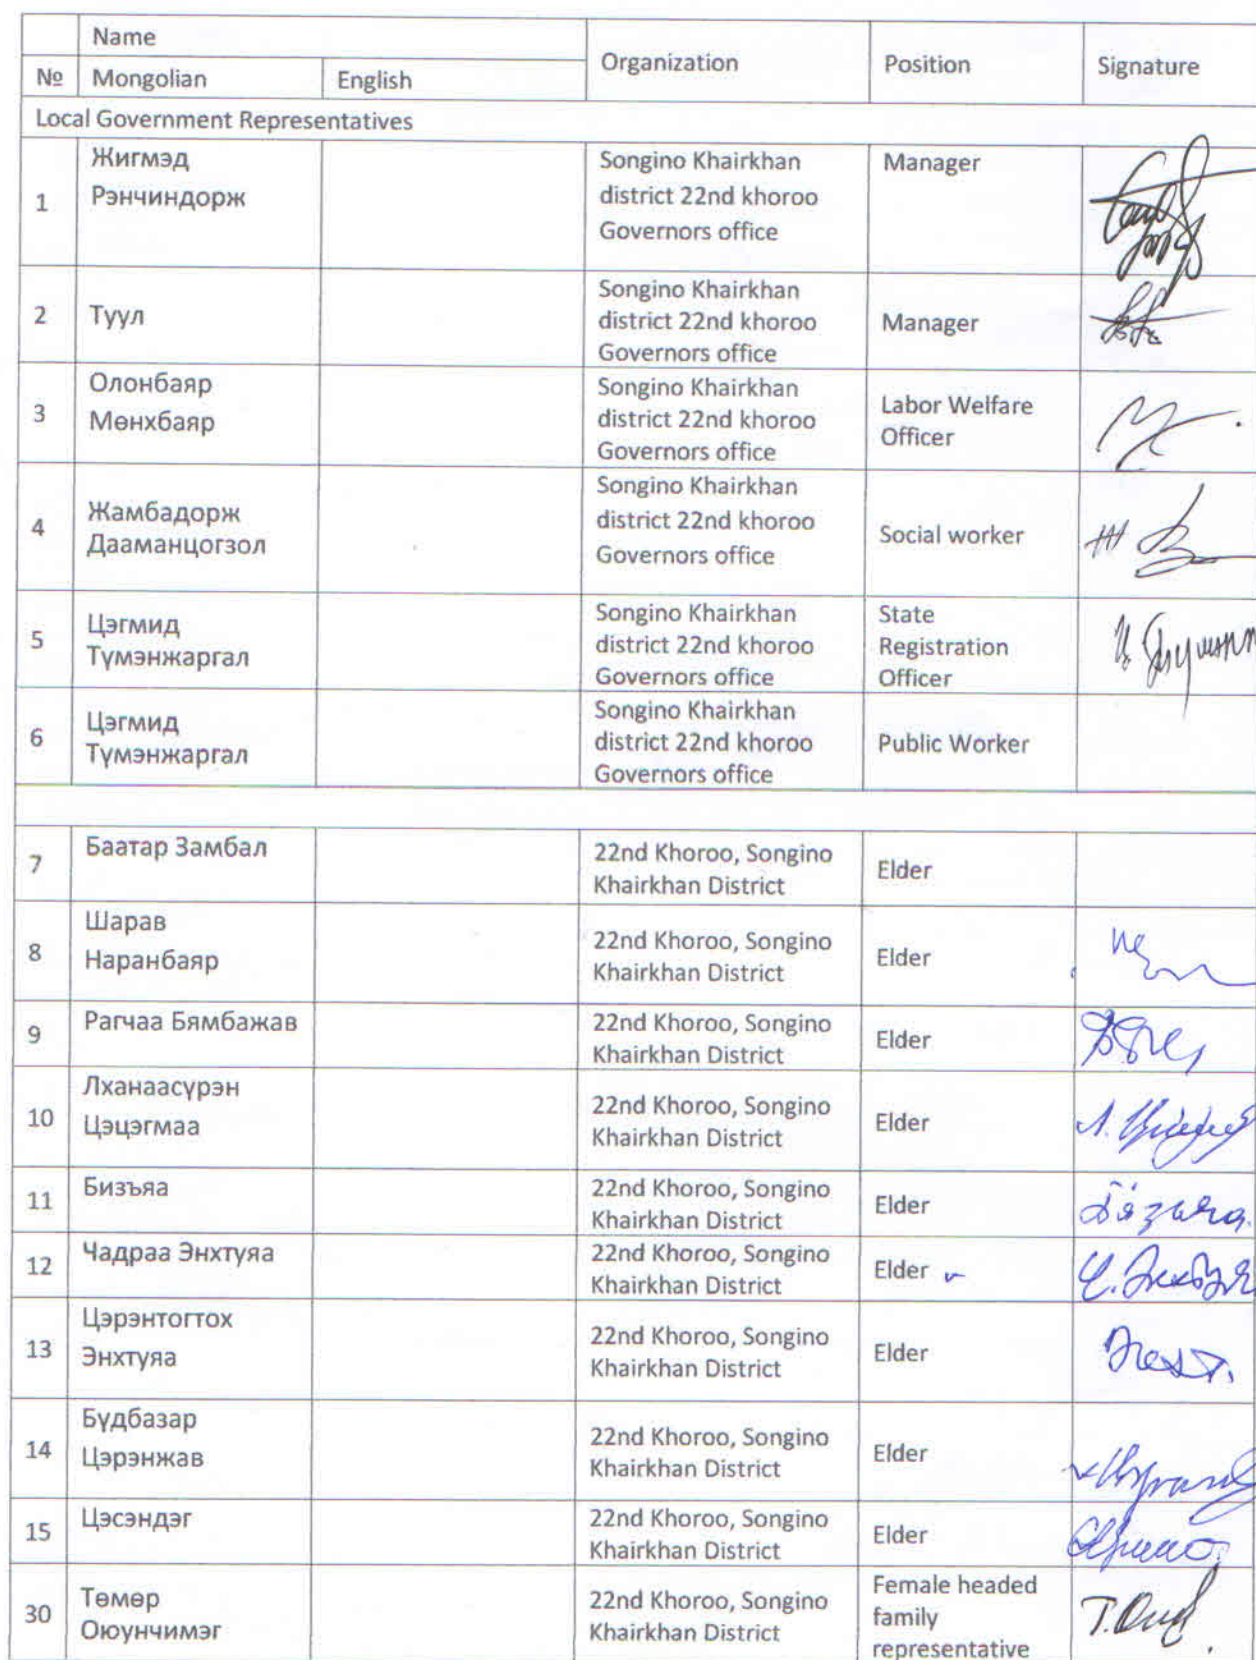 Name
Organization
Position
Signature
№
Mongolian
English
Local Government Representatives
1
Жигмэд
Рэнчиндорж
Songino Khairkhan
district 22nd khoroo
Governors office
Manager
2
Туул
Songino Khairkhan
district 22nd khoroo
Governors office
Manager
3
Олонбаяр
Мөнхбаяр
Songino Khairkhan
district 22nd khoroo
Governors office
Labor Welfare
Officer
4
Жамбадорж
Дааманцогзол
Songino Khairkhan
district 22nd khoroo
Governors office
Social worker
5
Цэгмид
Түмэнжаргал
Songino Khairkhan
district 22nd khoroo
Governors office
State
Registration
Officer
6
Цэгмид
Түмэнжаргал
Songino Khairkhan
district 22nd khoroo
Governors office
Public Worker
7
Баатар Замбал
22nd Khoroo, Songino
Khairkhan District
Elder
8
Шарав
Наранбаяр
22nd Khoroo, Songino
Khairkhan District
Elder
9
Рагчаа Бямбажав
22nd Khoroo, Songino
Khairkhan District
Elder
10
Лханаасүрэн
Цэцэгмаа
22nd Khoroo, Songino
Khairkhan District
Elder
11
Бизъяа
22nd Khoroo, Songino
Khairkhan District
Elder
12
Чадраа Энхтуяа
22nd Khoroo, Songino
Khairkhan District
Elder
13
Цэрэнтогтох
Энхтуяа
22nd Khoroo, Songino
Khairkhan District
Elder
14
Бүдбазар
Цэрэнжав
22nd Khoroo, Songino
Khairkhan District
Elder
15
Цэсэндэг
22nd Khoroo, Songino
Khairkhan District
Elder
30
Төмөр
Оюунчимэг
22nd Khoroo, Songino
Khairkhan District
Female headed
family
representative